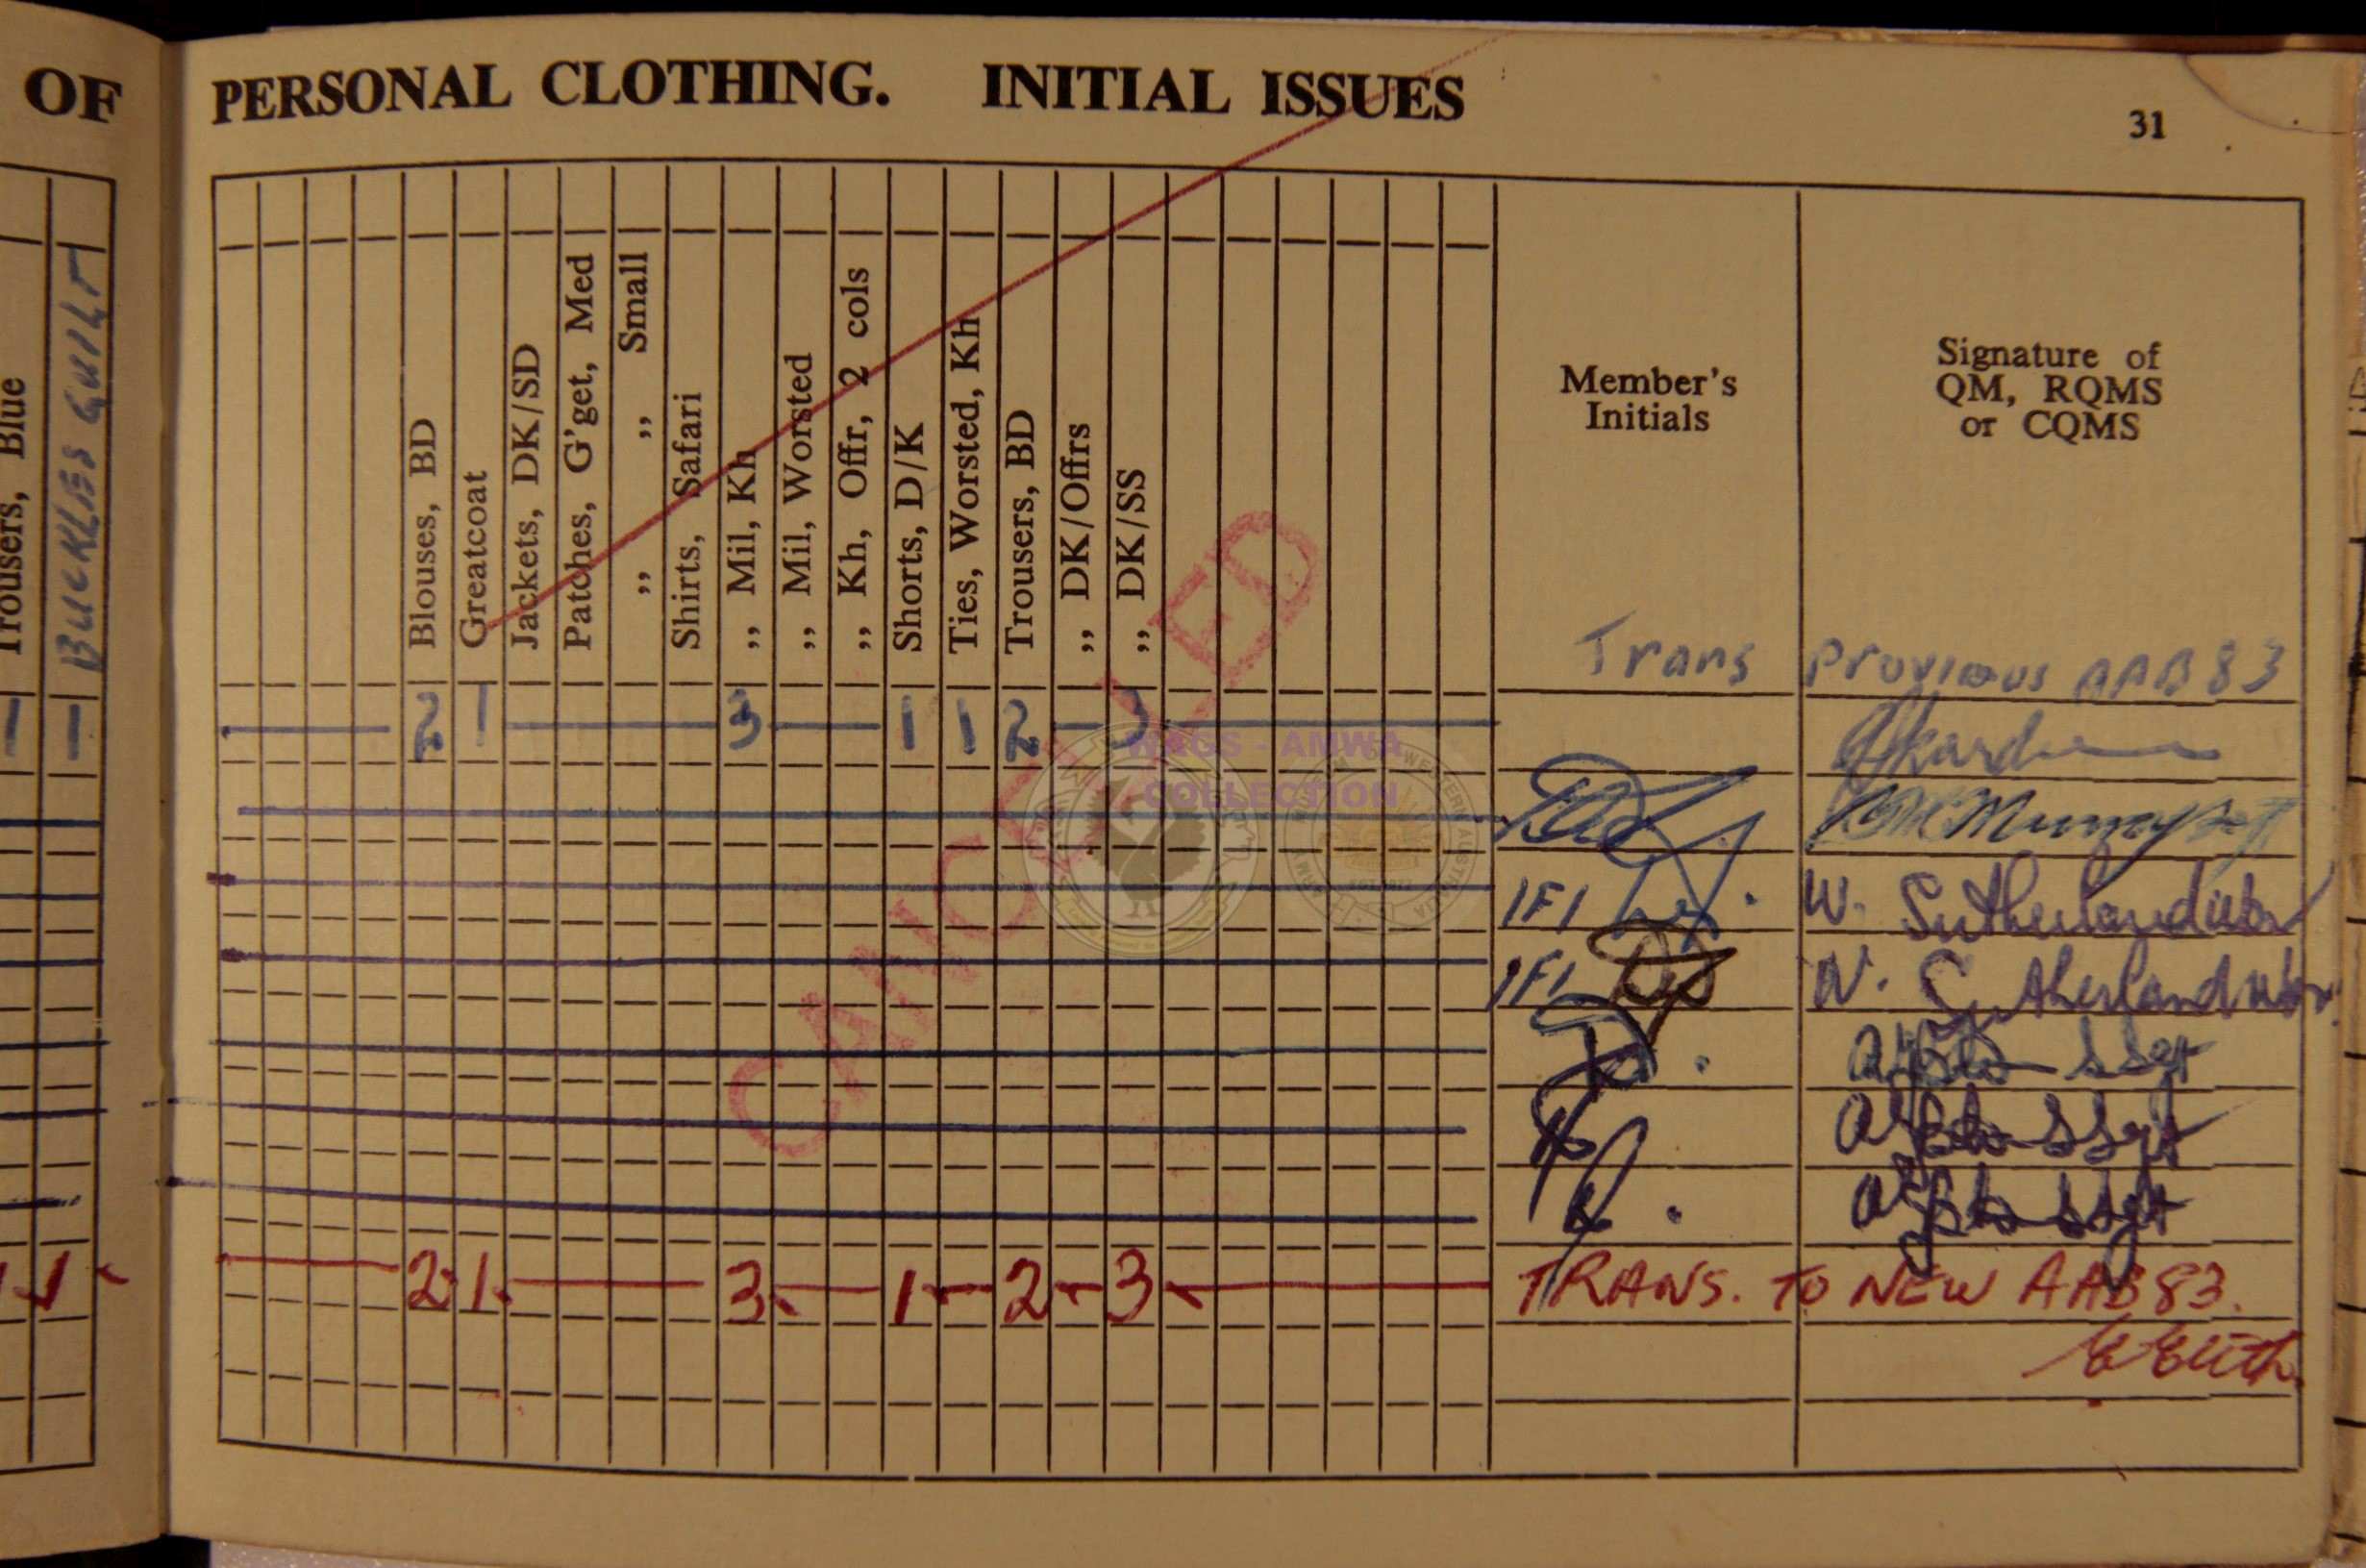 OF PERSONAL CLOTHING. INITIAL ISSUES
31
Trousers, Blue
BUCKLES GUILT
Blouses, BD
Greatcoat
Jackets, DK/SD
Patches, G'get, Med
,, ,, Small
Shirts, Safari
,, Mil, Kh
,, Mil, Worsted
,, Kh, Offr, 2 cols
Shorts, D/K
Ties, Worsted, Kh
Trousers, BD
,, DK/Offrs
,, DK/SS
Member's
Initials
Signature of
QM, RQMS
or CQMS
Trans Previous AAB 83
2 1 3 1 1 2 3
WAGS - AMWA
COLLECTION
CANCELLED
1F1 W. Sutherland
1F1 W. Sutherland
SSgt
SSgt
SSgt
1 2 1 3 1 2 3 TRANS. TO NEW AAB 83.